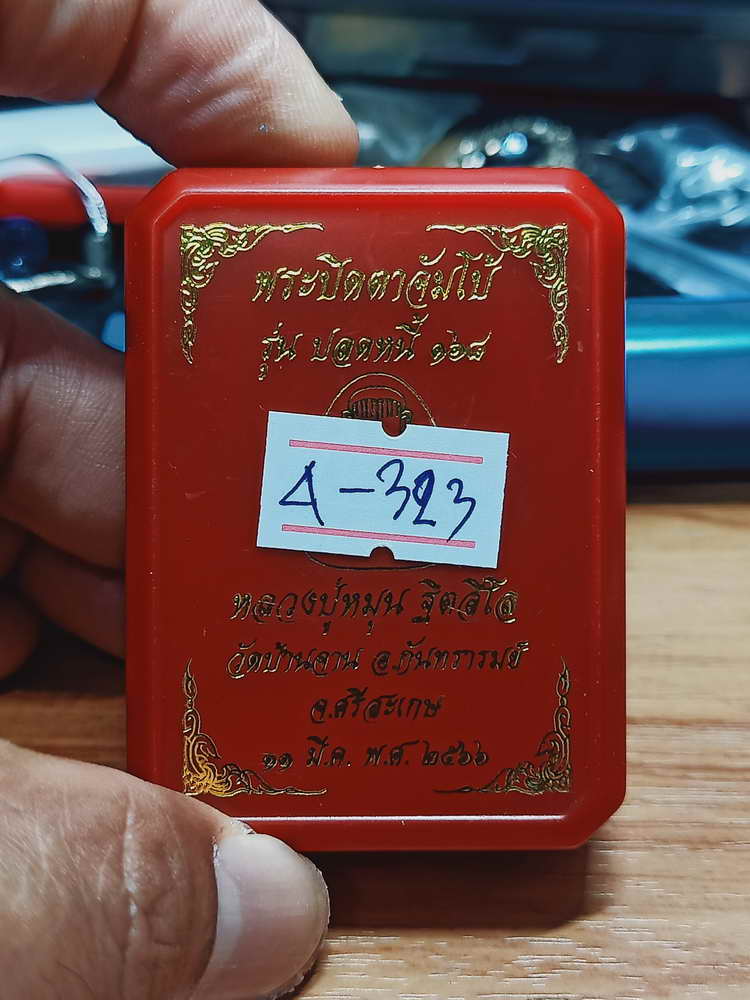 พระปิดตาจัมโบ้
รุ่น ปลดหนี้ ๑๖๘
A-323
หลวงปู่หมุน ฐิตสีโล
วัดบ้านจาน อ.กันทรารมย์
จ.ศรีสะเกษ
๑๑ มี.ค. พ.ศ. ๒๕๖๖